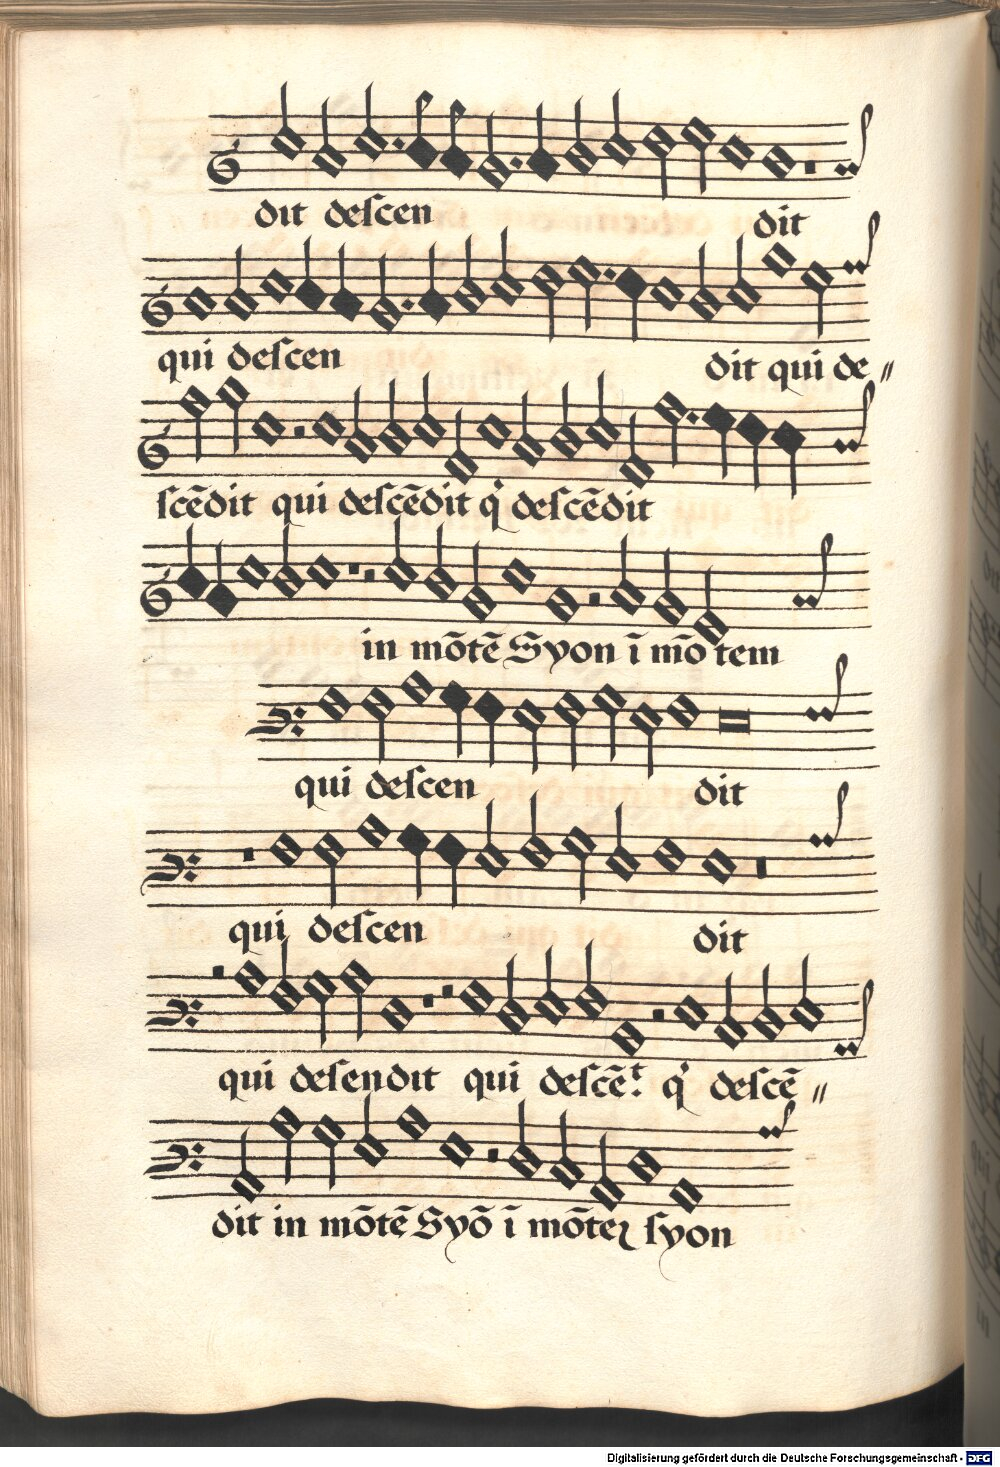 dit deſcen dit
qui deſcen dit qui de〃
ſcēdit qui deſcēdit q̇ deſcēdit
in mōtē Syon ī mō tem
qui deſcen dit
qui deſcen dit
qui deſendit qui deſcēᵗ: q̇ deſcē〃
dit in mōtē Syō ī mōteʒ ſyon
Digitalisierung gefördert durch die Deutsche Forschungsgemeinschaft - DFG